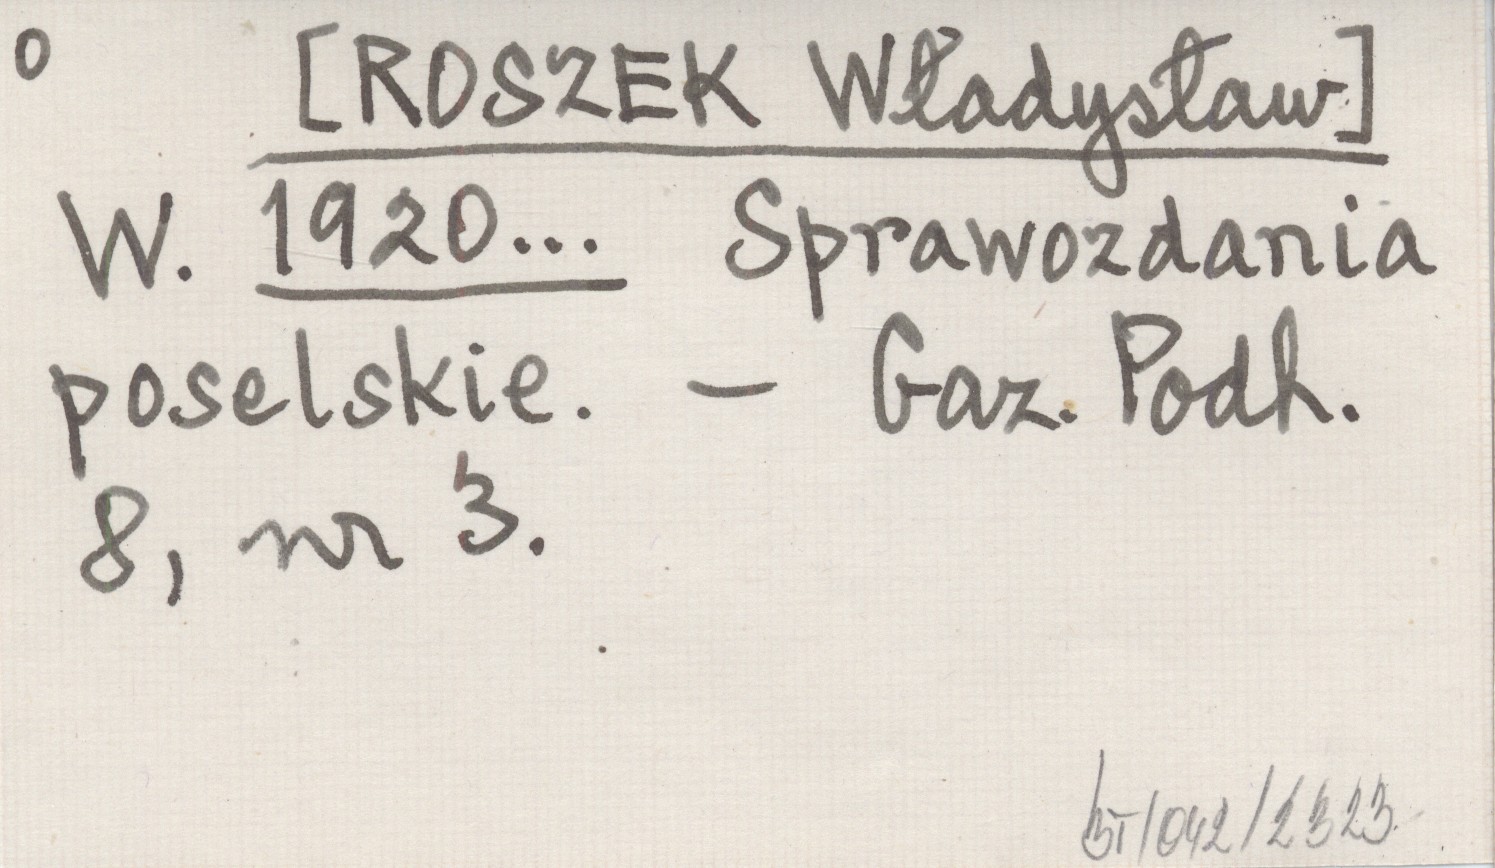 o [ROSZEK Władysław]
W. 1920... Sprawozdania
poselskie. — Gaz. Podh.
8, nr 3.
BT/042/2323